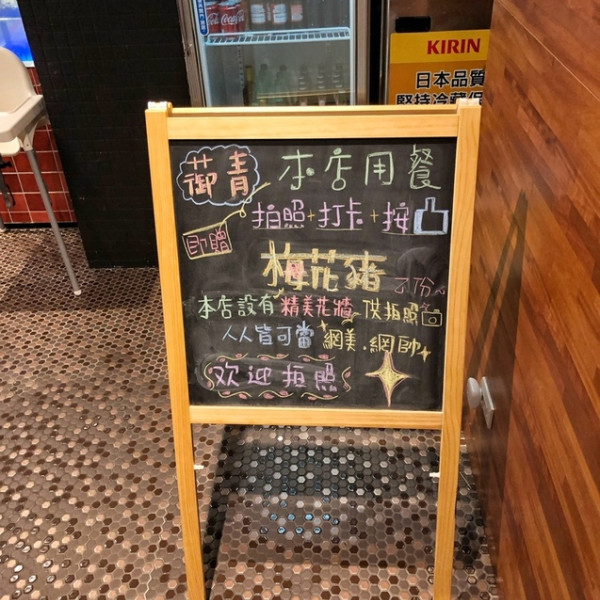 Coca-Cola
KIRIN
日本品質
堅持冷藏保
御青 本店用餐
拍照+打卡+按
即贈
梅花豬
乙份~
本店設有精美花牆 供拍照
人人皆可當 網美.網帥
欢迎拍照